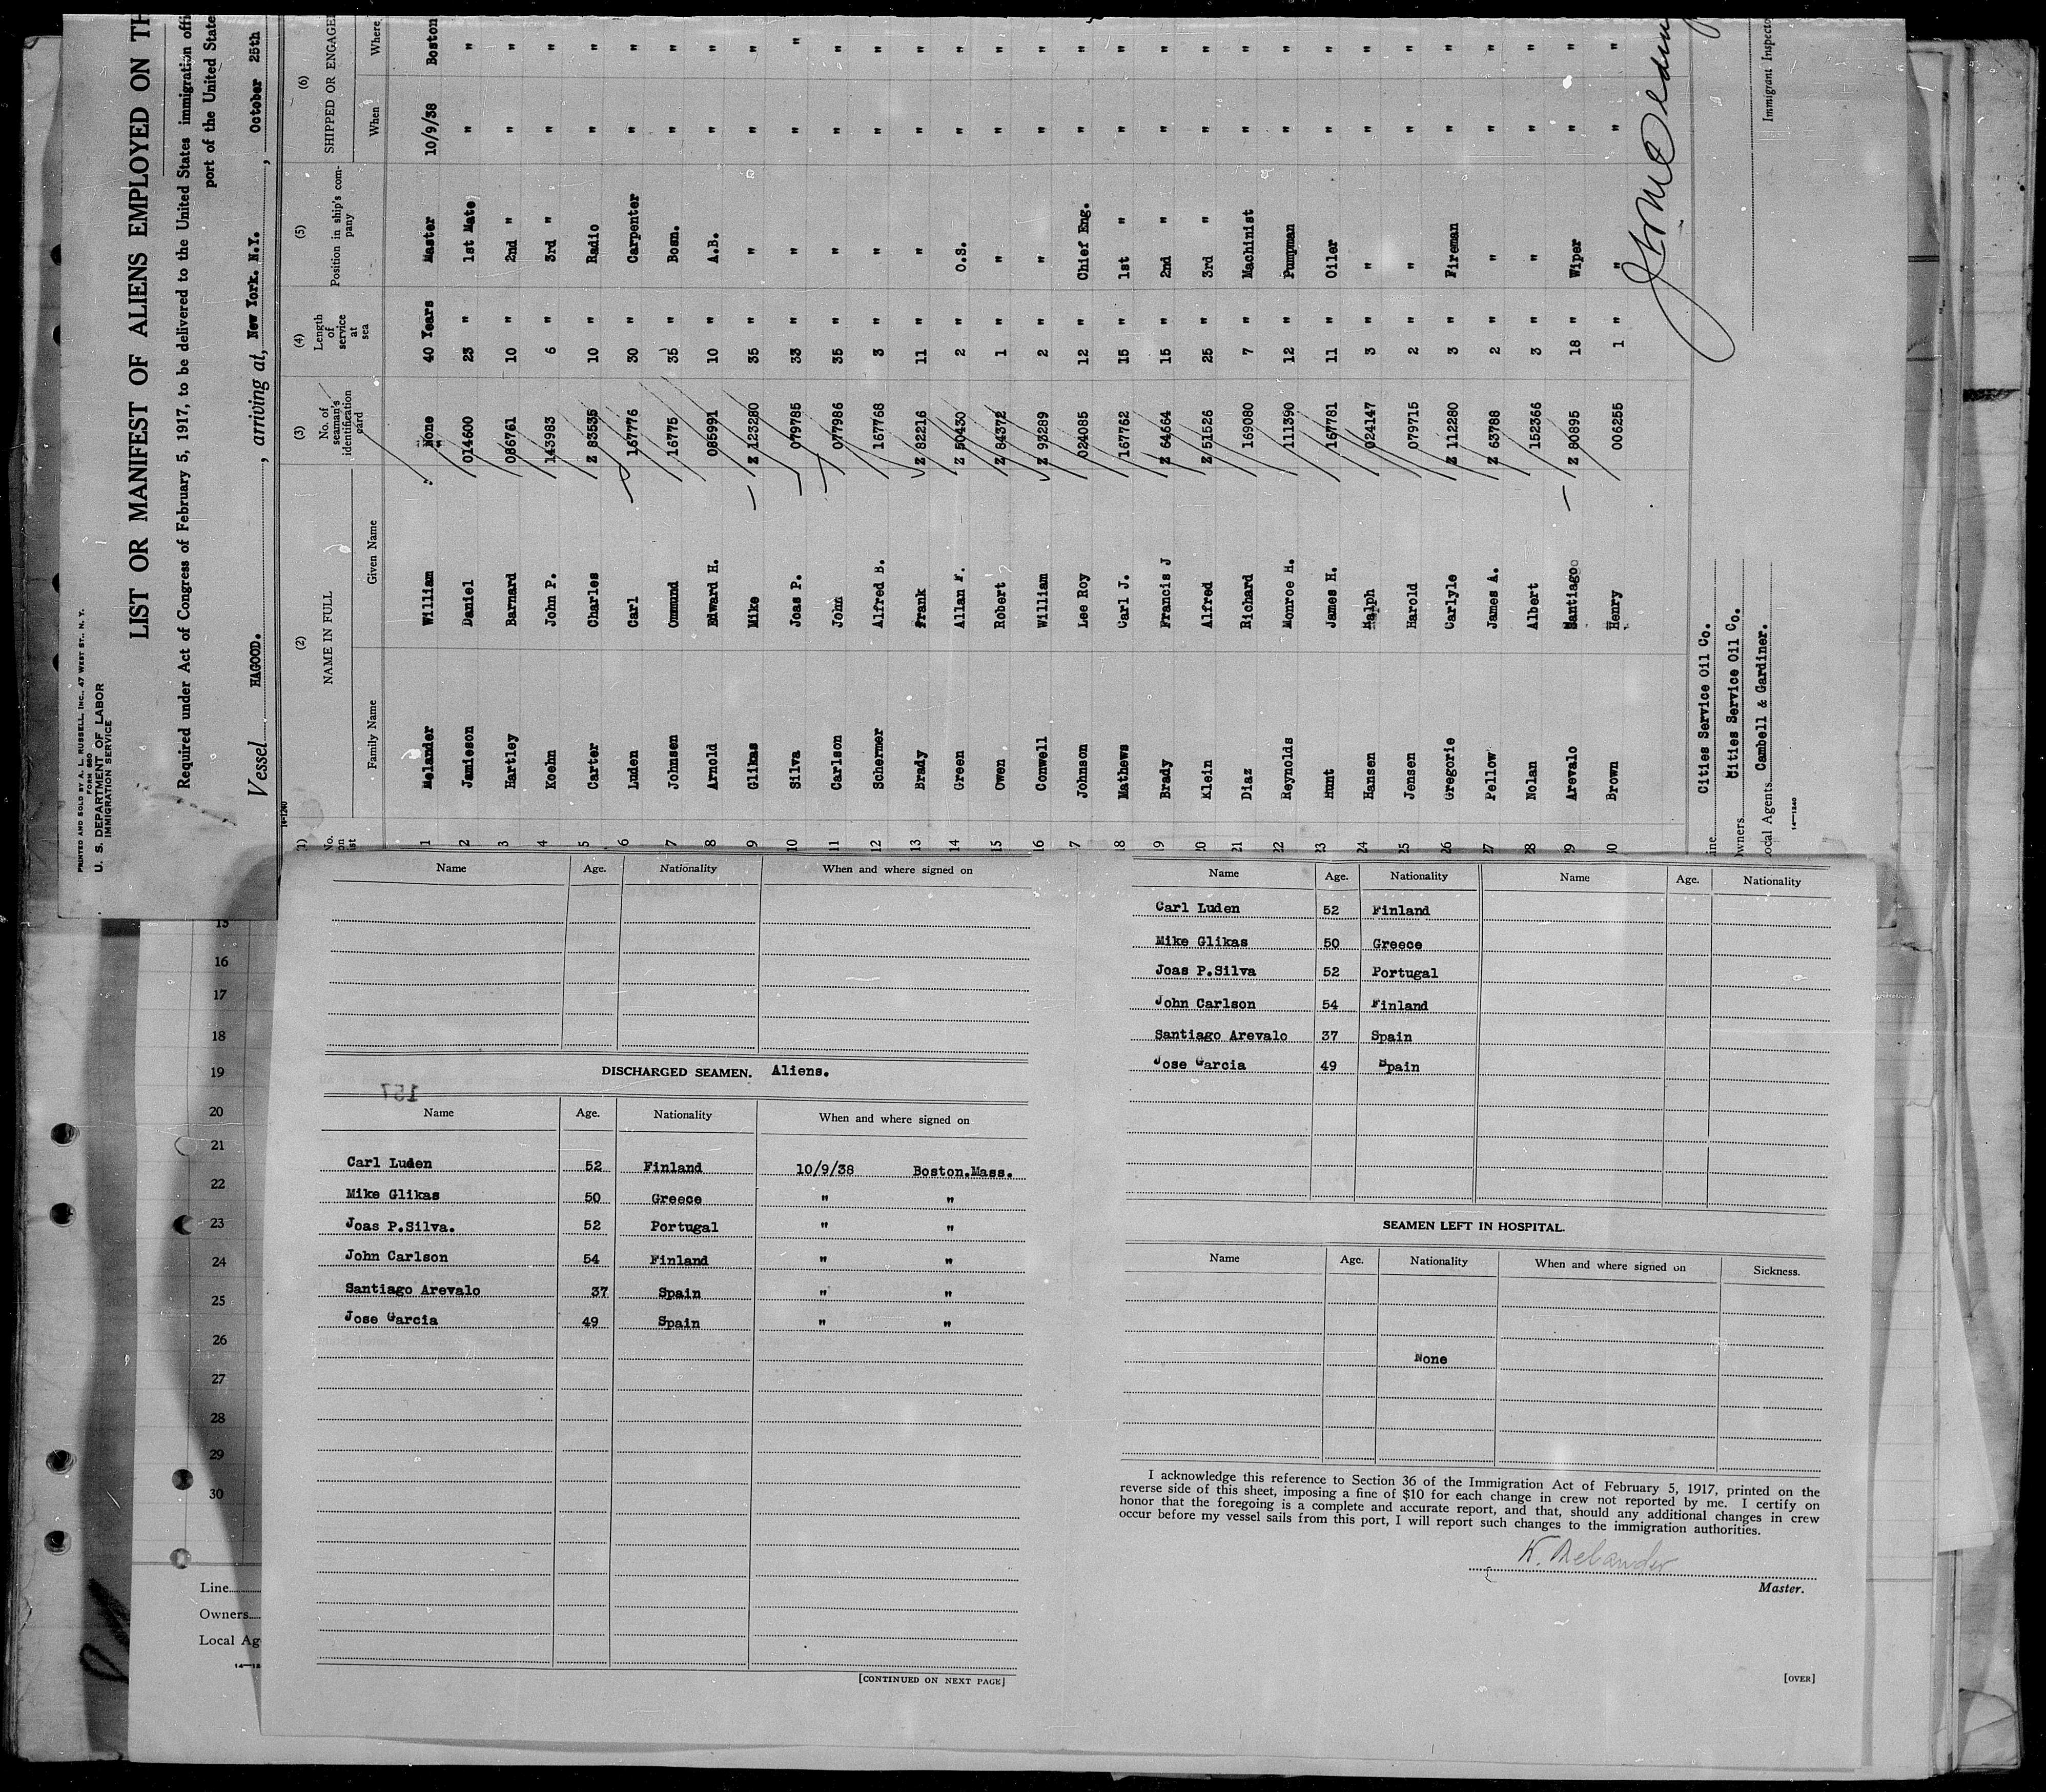 PRINTED AND SOLD BY A. L. RUSSELL, INC., 47 WEST ST., N. Y.
FORM 680
U. S. DEPARTMENT OF LABOR
IMMIGRATION SERVICE
LIST OR MANIFEST OF ALIENS EMPLOYED ON TH
Required under Act of Congress of February 5, 1917, to be delivered to the United States immigration offi
port of the United State
Vessel HAGOOD. , arriving at, New York. N.Y. , October 25th
14-1240
(1) (2) (3) (4) (5) (6)
No. on list NAME IN FULL No. of seaman's identification card Length of service at sea Position in ship's company SHIPPED OR ENGAGE
Family Name Given Name When Where
1 Melander William None 40 Years Master 10/9/38 Boston
2 Jamieson Daniel 014600 23 " 1st Mate " "
3 Hartley Barnard 086761 10 " 2nd " " "
4 Koehn John P. 143983 6 " 3rd " " "
5 Carter Charles Z 83535 10 " Radio " "
6 Luden Carl 167776 30 " Carpenter " "
7 Johnsen Ommund 16775 35 " Bosn. " "
8 Arnold Edward H. 085991 10 " A.B. " "
9 Glikas Mike Z 123280 35 " " " "
10 Silva Joas P. 079785 33 " " " "
11 Carlson John 077986 35 " " " "
12 Schermer Alfred B. 167768 3 " " " "
13 Brady Frank Z 82216 11 " " " "
14 Green Allan F. Z 50430 2 " O.S. " "
15 Owen Robert Z 84372 1 " " " "
16 Conwell William Z 93289 2 " " " "
7 Johnson Lee Roy 024085 12 " Chief Eng. " "
18 Mathews Carl J. 167762 15 " 1st " " "
9 Brady Francis J Z 64664 15 " 2nd " " "
20 Klein Alfred Z 51526 25 " 3rd " " "
21 Diaz Richard 169080 7 " Machinist " "
22 Reynolds Monroe H. 111390 12 " Pumpman " "
23 Hunt James H. 167781 11 " Oiler " "
24 Hansen Ralph 024147 3 " " " "
25 Jensen Harold 079715 2 " " " "
26 Gregorie Carlyle Z 112280 3 " Fireman " "
27 Pellow James A. Z 63788 2 " " " "
28 Nolan Albert 152366 3 " " " "
29 Arevalo Santiago Z 80895 18 " Wiper " "
30 Brown Henry 006255 1 " " " "
Line Cities Service Oil Co.
Owners Cities Service Oil Co.
Local Agents Cambell & Gardiner.
14-1240
Immigrant Inspecto
Name Age. Nationality When and where signed on
DISCHARGED SEAMEN. Aliens.
157
Name Age. Nationality When and where signed on
Carl Luden 52 Finland 10/9/38 Boston.Mass.
Mike Glikas 50 Greece " "
Joas P.Silva. 52 Portugal " "
John Carlson 54 Finland " "
Santiago Arevalo 37 Spain " "
Jose Garcia 49 Spain " "
[CONTINUED ON NEXT PAGE]
Name Age. Nationality Name Age. Nationality
Carl Luden 52 Finland
Mike Glikas 50 Greece
Joas P.Silva 52 Portugal
John Carlson 54 Finland
Santiago Arevalo 37 Spain
Jose Garcia 49 Spain
SEAMEN LEFT IN HOSPITAL.
Name Age. Nationality When and where signed on Sickness.
None
I acknowledge this reference to Section 36 of the Immigration Act of February 5, 1917, printed on the
reverse side of this sheet, imposing a fine of $10 for each change in crew not reported by me. I certify on
honor that the foregoing is a complete and accurate report, and that, should any additional changes in crew
occur before my vessel sails from this port, I will report such changes to the immigration authorities.
W. Melander
Master.
[OVER]
15
16
17
18
19
20
21
22
23
24
25
26
27
28
29
30
Line
Owners
Local Ag
14-12